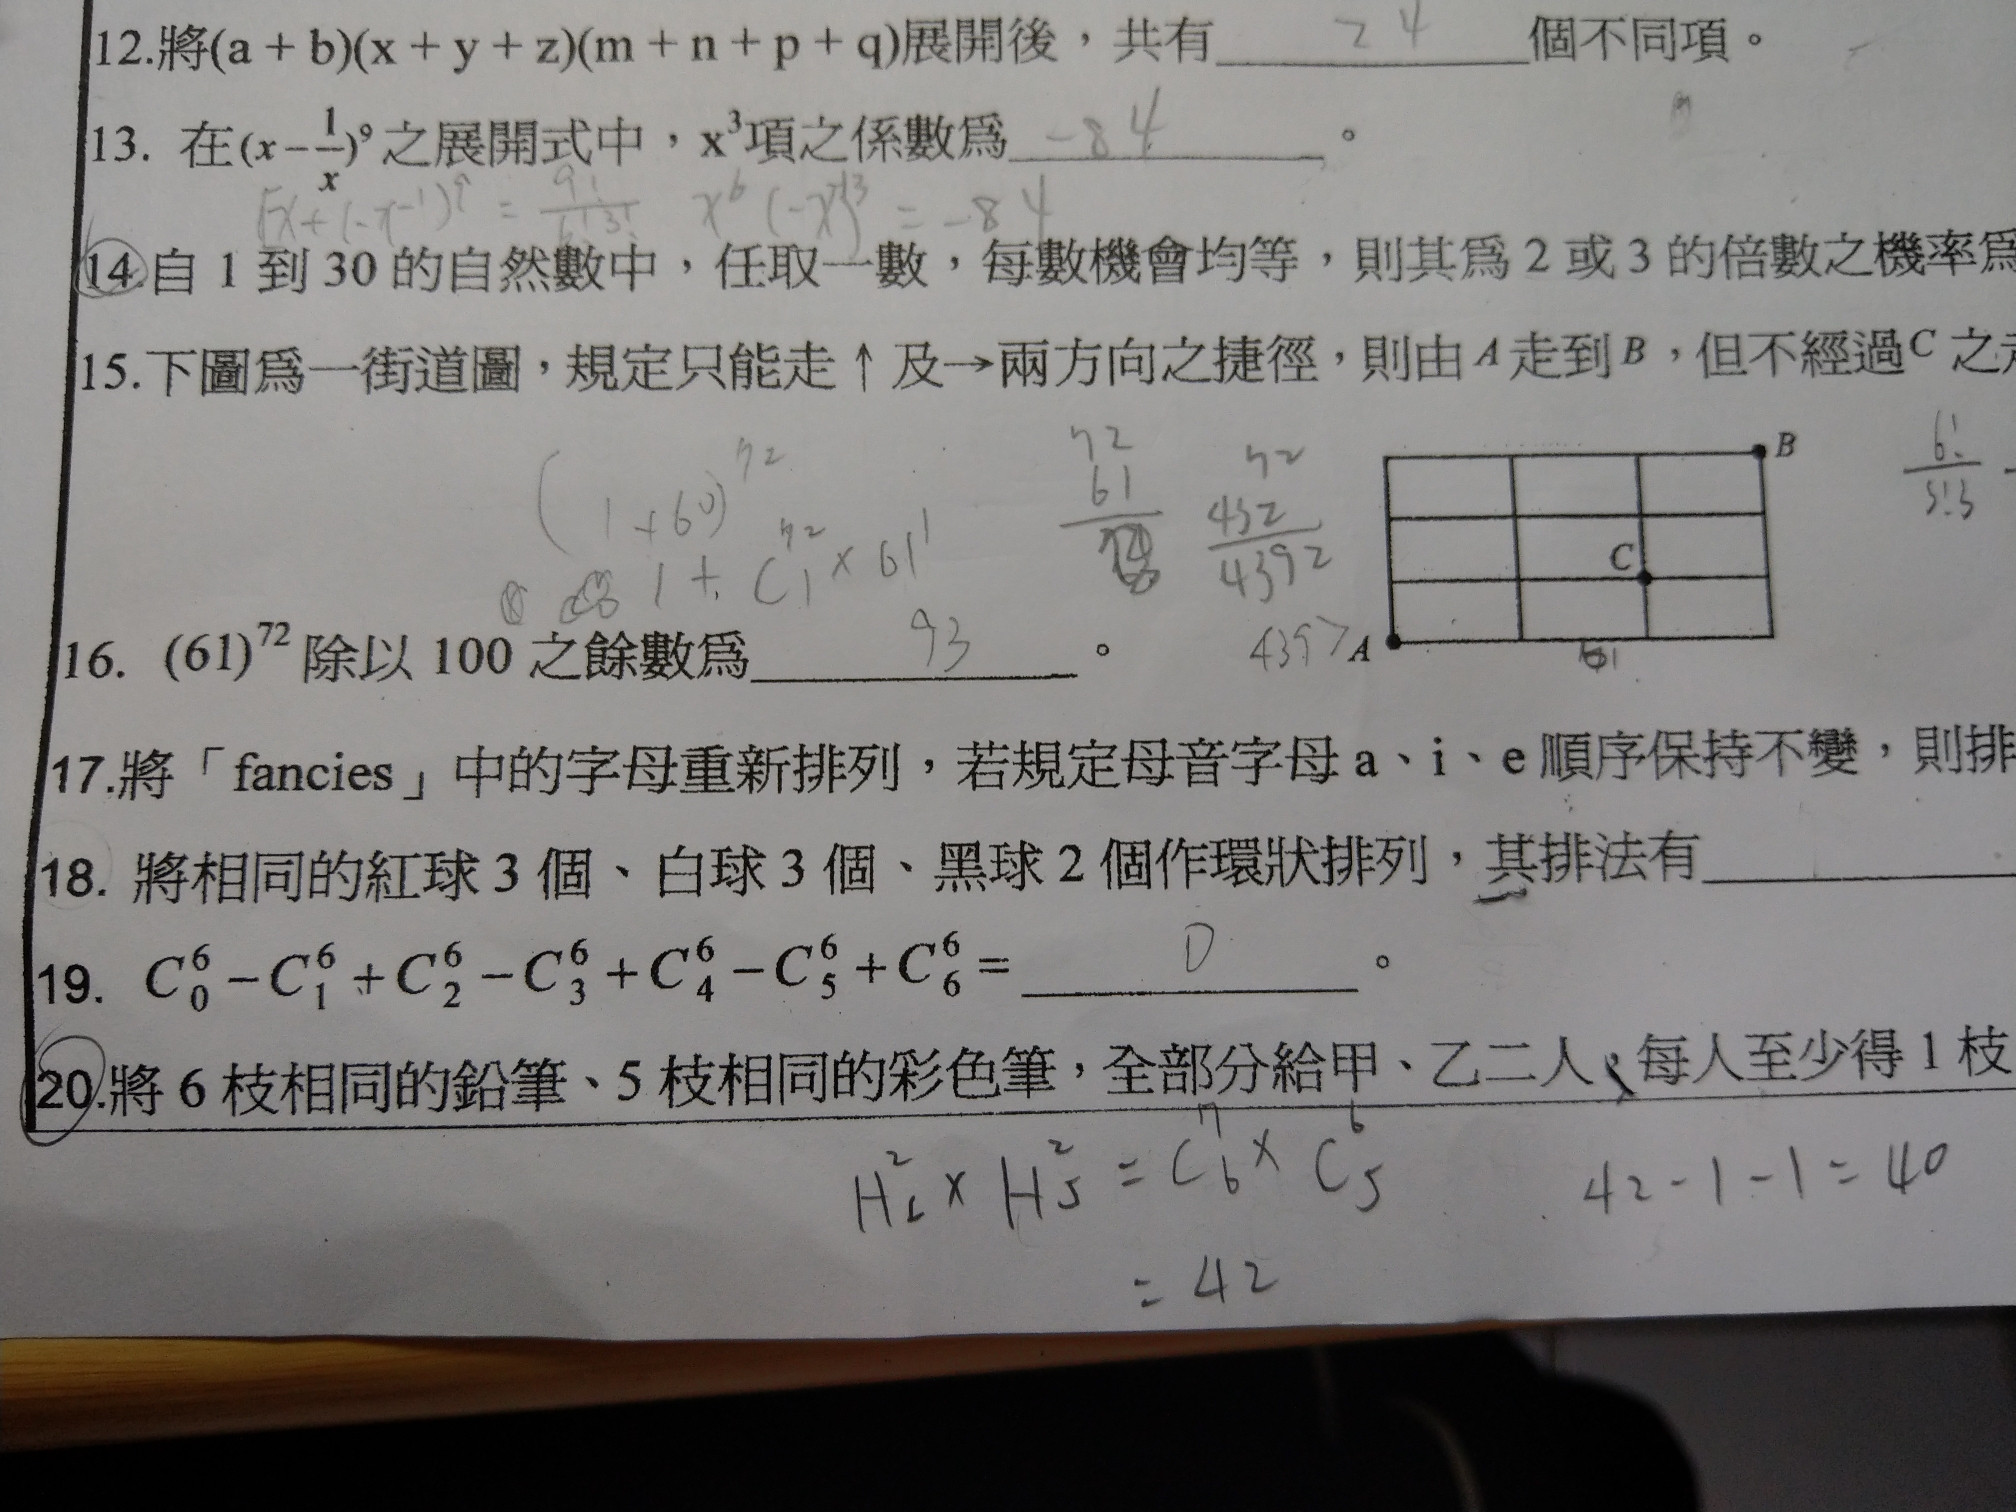 12.將(a + b)(x + y + z)(m + n + p + q)展開後,共有 24 個不同項。
13. 在(x-1/x)⁹之展開式中,x³項之係數爲 -84 。
[x+(-x⁻¹)]⁹ = 9!/6!3! x⁶(-x⁻¹)³ = -84
14.自 1 到 30 的自然數中,任取一數,每數機會均等,則其爲 2 或 3 的倍數之機率爲
15.下圖爲一街道圖,規定只能走↑及→兩方向之捷徑,則由 A 走到 B,但不經過 C 之
(1+60)⁷²
1 + C₁⁷² × 61¹
72
61
72
432
4392
4397
B
C
A
6!
3!3
16. (61)⁷² 除以 100 之餘數爲 93 。
17.將「fancies」中的字母重新排列,若規定母音字母 a、i、e 順序保持不變,則排
18. 將相同的紅球 3 個、白球 3 個、黑球 2 個作環狀排列,其排法有
19. C₀⁶-C₁⁶+C₂⁶-C₃⁶+C₄⁶-C₅⁶+C₆⁶= 0 。
20.將 6 枝相同的鉛筆、5 枝相同的彩色筆,全部分給甲、乙二人,每人至少得 1 枝
H₆² × H₅² = C₆⁷ × C₅⁶
42-1-1=40
= 42